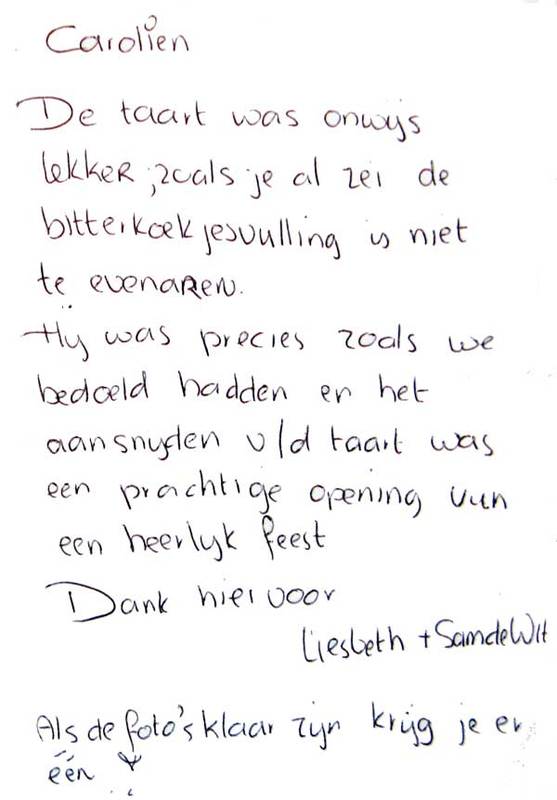 Carolien
De taart was onwijs
lekker, zoals je al zei de
bitterkoekjesvulling is niet
te evenaren.
Hij was precies zoals we
bedoeld hadden en het
aansnijden v/d taart was
een prachtige opening van
een heerlijk feest
Dank hiervoor
Liesbeth + Sam de Wit
Als de foto's klaar zijn krijg je er
één